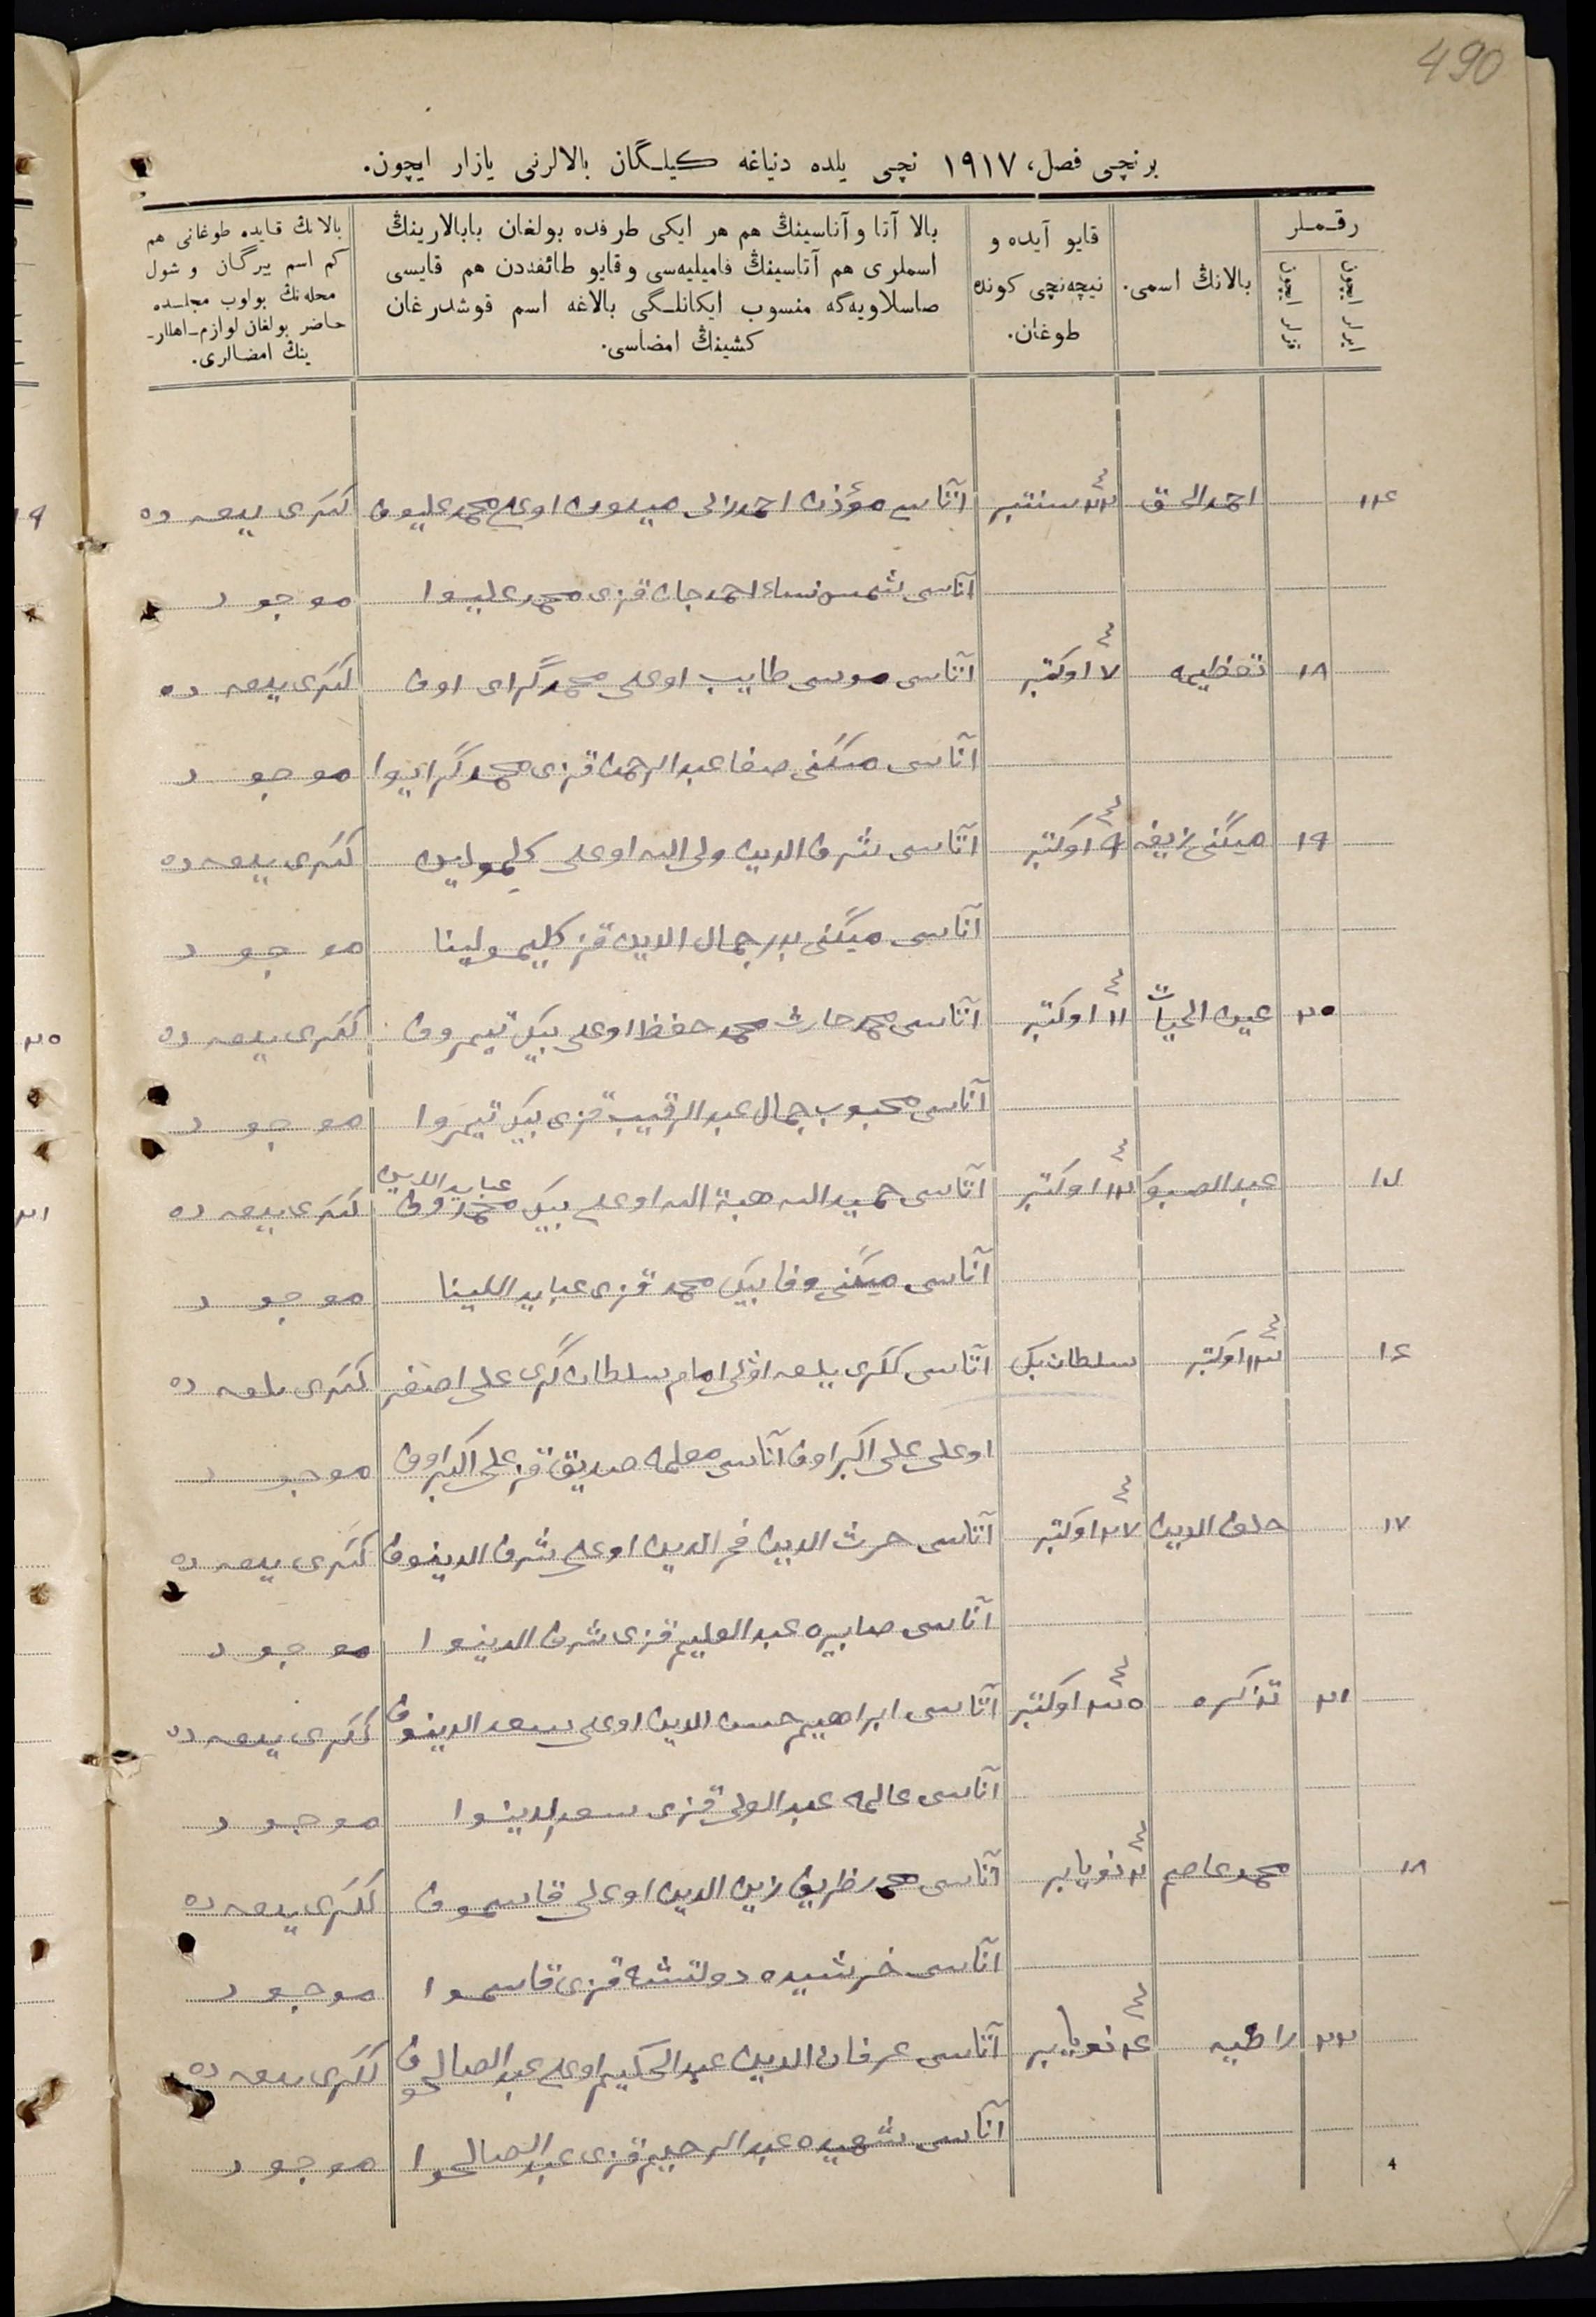 490
برنچی فصل، ۱۹۱۷ نچی یلده دنیاغه کیلگان بالالرنی یازار ایچون.
رقملر
ایرلر ایچون
قزلر ایچون
بالانڭ اسمی.
قایو آیده و
نیچه‌نچی کونده
طوغان.
بالا آتا و آناسینڭ هم هر ایکی طرفده بولغان بابالارینڭ
اسملری هم آتاسینڭ فامیلیه‌سی و قایو طائفه‌دن هم قایسی
صاسلاویه‌گه منسوب ایکانلگی بالاغه اسم قوشدرغان
کشینڭ امضاسی.
بالانڭ قایده طوغانی هم
کم اسم بیرگان و شول
محله‌نڭ بولوب مجلسده
حاضر بولغان لوازم-اهللر-
ینڭ امضالری.
احمدالحق سنتبر آتاسی مؤذن اوغلی محمدعلیوف ککری یلعه ده
آناسی شمس نساء احمدجان قزی محمدعلیوا موجود
۱۸ تعظیمه ۷ اوکتبر آتاسی موسی طایب اوغلی محمدگرای اوف ککری یلعه ده
آناسی منگنی صفا عبدالرحمن قزی محمدگرایوا موجود
۱۹ میگنی زیفه ۹ اوکتبر آتاسی شرف الدین ولی الله اوغلی ککری یلعه ده
آناسی میگنی بدر جمال الدین قزی کلیمولینا موجود
۲۰ عین الحیات ۱۱ اوکتبر آتاسی محمد حارث محمد حفظ اوغلی بیک تیمروف ککری یلعه ده
آناسی محبوب جمال عبدالرقیب قزی بیک تیمروا موجود
عبدالصبور ۱۲ اوکتبر آتاسی حمیدالله هبة الله اوغلی بیک ککری یلعه ده
آناسی میگنی وفا بیک محمد قزی موجود
۱۶ ۱۳ اوکتبر سلطان بک آتاسی ککری یلعه اولی امام سلطان گری علی اصغر ککری یلعه ده
اوغلی علی اکبر اوف آناسی معلمه صدیق قزی علی اکبراوف موجود
۱۷ ۲۷ اوکتبر آتاسی حرث الدین فخر الدین اوغلی شرف الدینوف ککری یلعه ده
آناسی صابیره عبدالعلیم قزی شرف الدینوا موجود
۲۱ تذکره ۳۰ اوکتبر آتاسی ابراهیم حسن الدین اوغلی سعد الدینوف ککری یلعه ده
آناسی عالمه عبدالولی قزی سعدالدینوا موجود
۱۸ محمد عاصم ۲ نویابر آتاسی محمد ظریف زین الدین اوغلی قاسموف ککری یلعه ده
آناسی خرشیده دولتشه قزی قاسموا موجود
۲۲ راضیه نویابر آتاسی عرفان الدین عبدالحکیم اوغلی عبدالصالحوف ککری یلعه ده
آناسی شهیده عبدالرحیم قزی عبدالصالحوا موجود
4